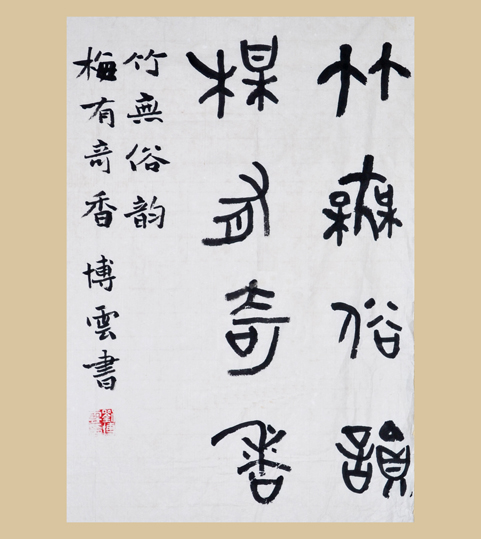 竹無俗韻
楳有奇香
竹無俗韵
梅有奇香 博雲書